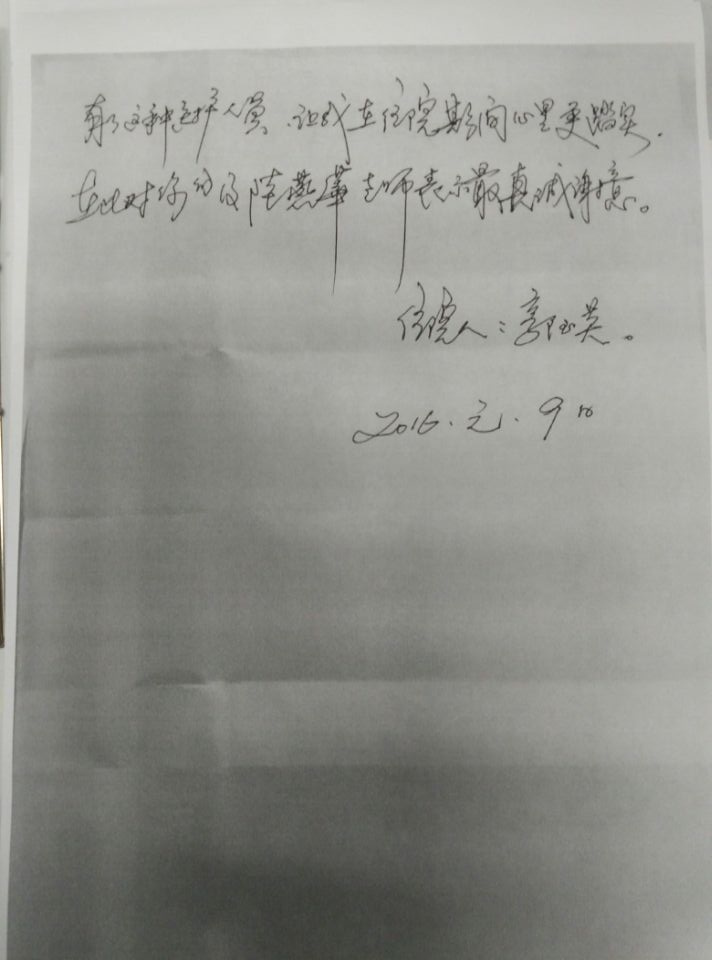 有了这种医护人员,让我在住院期间心里更踏实.
在此对你们及陆燕華老师表示最真诚谢意。
住院人:郭玉英。
2016.元.9日